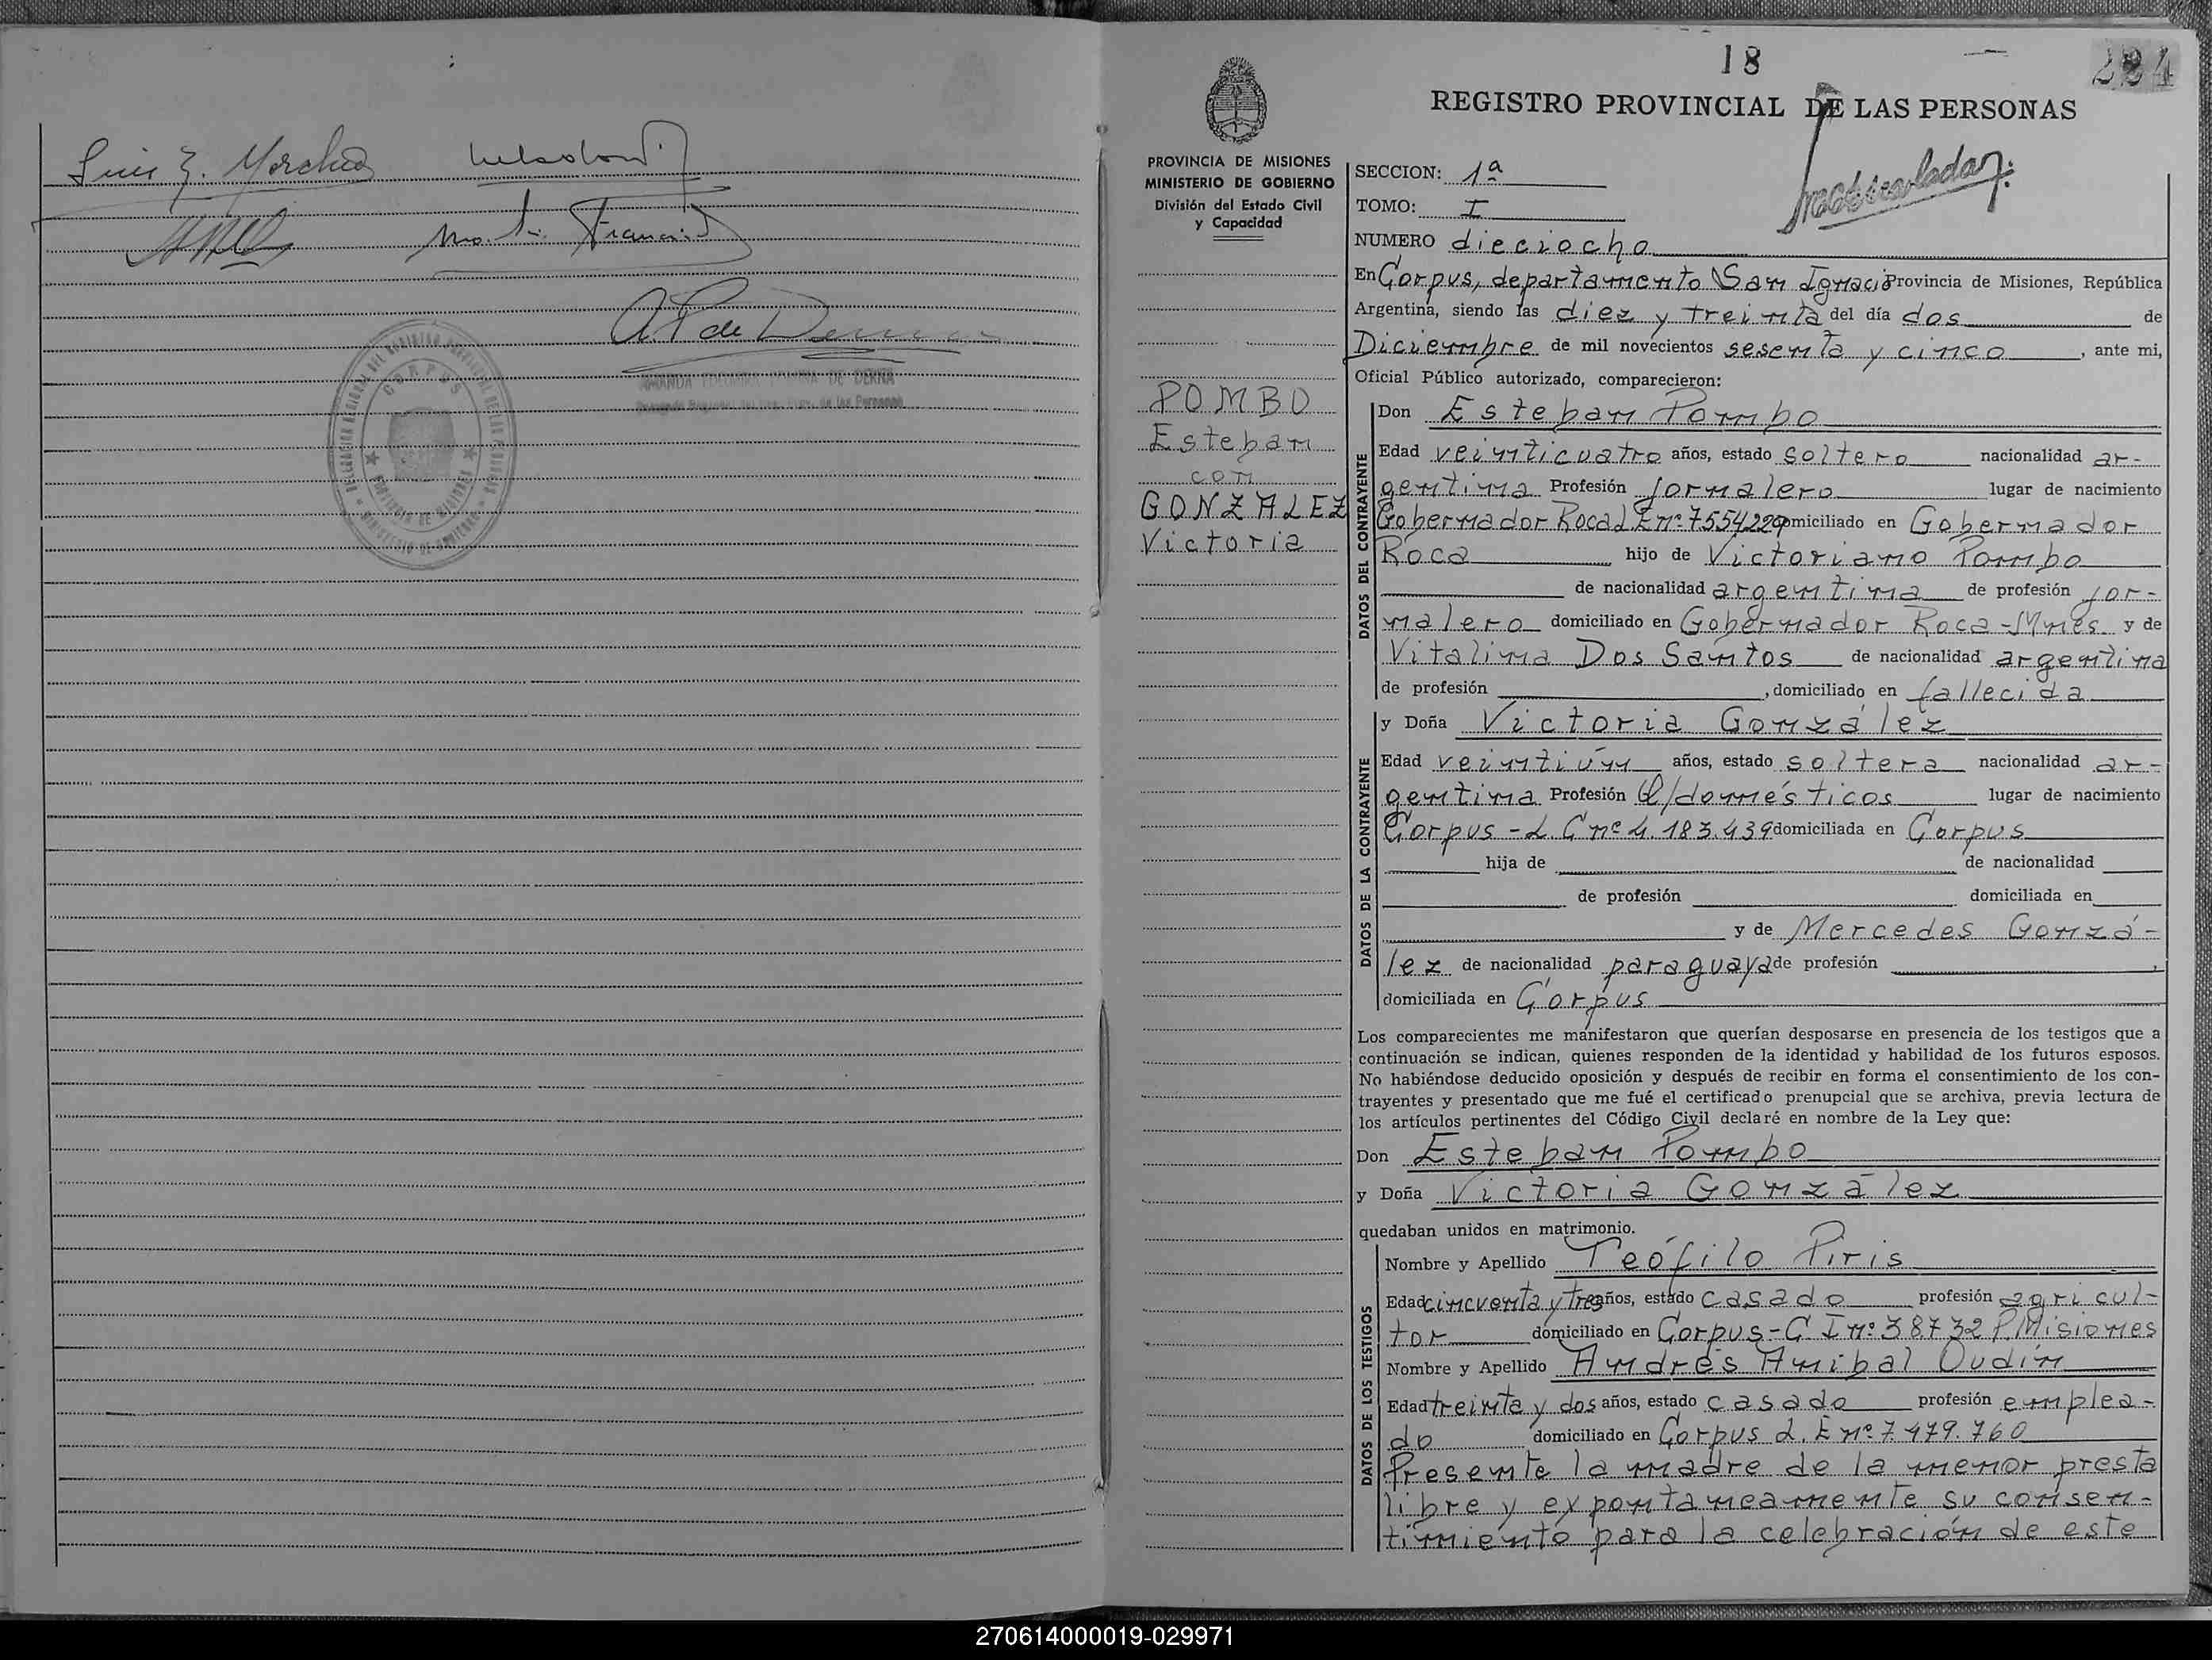 Luis
CORPUS
PROVINCIA DE MISIONES
AMANDA COLOMBA DE DERNA
18
284
REGISTRO PROVINCIAL DE LAS PERSONAS
PROVINCIA DE MISIONES
MINISTERIO DE GOBIERNO
División del Estado Civil
y Capacidad
POMBO
Esteban
con
GONZALEZ
Victoria
SECCION: 1ª
TOMO: I
NUMERO dieciocho
En Corpus, departamento San Ignacio Provincia de Misiones, República
Argentina, siendo las diez y treinta del día dos de
Diciembre de mil novecientos sesenta y cinco, ante mi,
Oficial Público autorizado, comparecieron:
DATOS DEL CONTRAYENTE
Don Esteban Pombo
Edad veinticuatro años, estado soltero nacionalidad ar-
gentina Profesión jornalero lugar de nacimiento
Gobernador Roca L E nº 7554229 domiciliado en Gobernador
Roca hijo de Victoriano Pombo
de nacionalidad argentina de profesión jor-
nalero domiciliado en Gobernador Roca - Mnes y de
Vitalina Dos Santos de nacionalidad argentina
de profesión , domiciliado en fallecida
DATOS DE LA CONTRAYENTE
y Doña Victoria González
Edad veintiún años, estado soltera nacionalidad ar-
gentina Profesión Q/domésticos lugar de nacimiento
Corpus - L C nº 4.183.439 domiciliada en Corpus
hija de de nacionalidad
de profesión domiciliada en
y de Mercedes Gonzá-
lez de nacionalidad paraguaya de profesión ,
domiciliada en Corpus
Los comparecientes me manifestaron que querían desposarse en presencia de los testigos que a
continuación se indican, quienes responden de la identidad y habilidad de los futuros esposos.
No habiéndose deducido oposición y después de recibir en forma el consentimiento de los con-
trayentes y presentado que me fué el certificado prenupcial que se archiva, previa lectura de
los artículos pertinentes del Código Civil declaré en nombre de la Ley que:
Don Esteban Pombo
y Doña Victoria González
quedaban unidos en matrimonio.
DATOS DE LOS TESTIGOS
Nombre y Apellido Teófilo Piris
Edad cincuenta y tres años, estado casado profesión agricul-
tor domiciliado en Corpus - C I nº 38732 P. Misiones
Nombre y Apellido Andrés Anibal Oudín
Edad treinta y dos años, estado casado profesión emplea-
do domiciliado en Corpus L. E nº 7.479.760
Presente la madre de la menor presta
libre y expontaneamente su consen-
timiento para la celebración de este
270614000019-029971